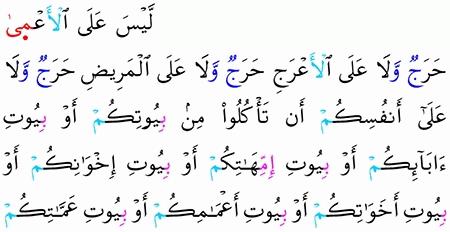 لَّيْسَ عَلَى ٱلْأَعْمِىٰ
حَرَجٌ وَّلَا عَلَى ٱلْأَعْرَجِ حَرَجٌ وَّلَا عَلَى ٱلْمَرِيضِ حَرَجٌ وَّلَا
عَلَىٰٓ أَنفُسِكُمْ أَن تَأْكُلُوا۟ مِنۢ بِيُوتِكُمْ أَوْ بِيُوتِ
ءَابَآئِكُمْ أَوْ بِيُوتِ إِمِّهَٰتِكُمْ أَوْ بِيُوتِ إِخْوَٰنِكُمْ أَوْ
بِيُوتِ أَخَوَٰتِكُمْ أَوْ بِيُوتِ أَعْمَٰمِكُمْ أَوْ بِيُوتِ عَمَّٰتِكُمْ